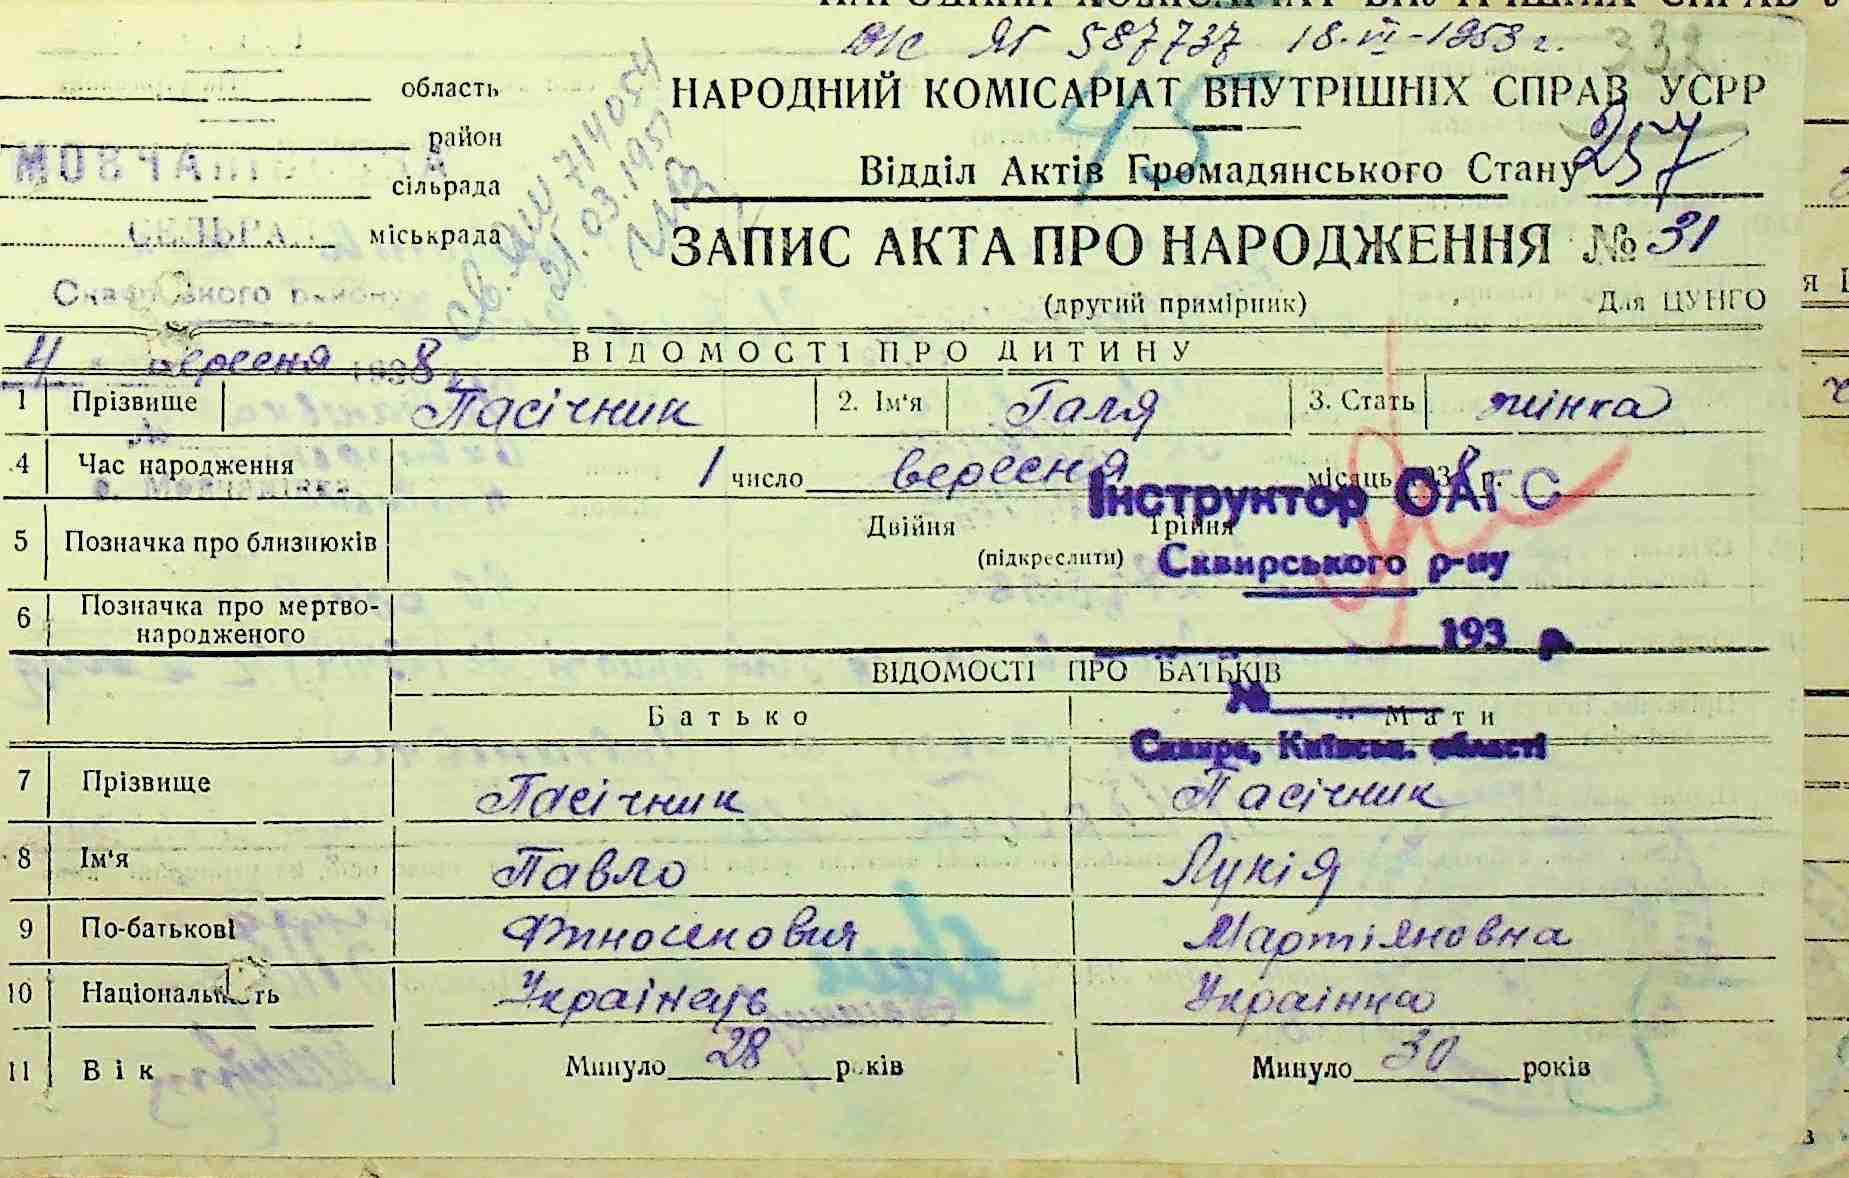 ЯГ 587737 18.VI-1953 г. 332
область
НАРОДНИЙ КОМІСАРІАТ ВНУТРІШНІХ СПРАВ УСРР
45
район
Відділ Актів Громадянського Стану 257
сільрада
714054
міськрада
ЗАПИС АКТА ПРО НАРОДЖЕННЯ № 31
(другий примірник) Для ЦУНГО
ВІДОМОСТІ ПРО ДИТИНУ
4 вересня 1938
1 Прізвище Пасічник 2. Ім'я Галя 3. Стать жінка
4 Час народження 1 число вересня місяць 1938 р.
Інструктор ОАГС
5 Позначка про близнюків Двійня Трійня
(підкреслити)
Сквирського р-ну
6 Позначка про мертво-
народженого
193 р.
ВІДОМОСТІ ПРО БАТЬКІВ
№
Батько Мати
Сквира, Київськ. області
7 Прізвище Пасічник Пасічник
8 Ім'я Павло Лукія
9 По-батькові Мартіяновна
10 Національність Украінець Украінка
11 Вік Минуло 28 років Минуло 30 років